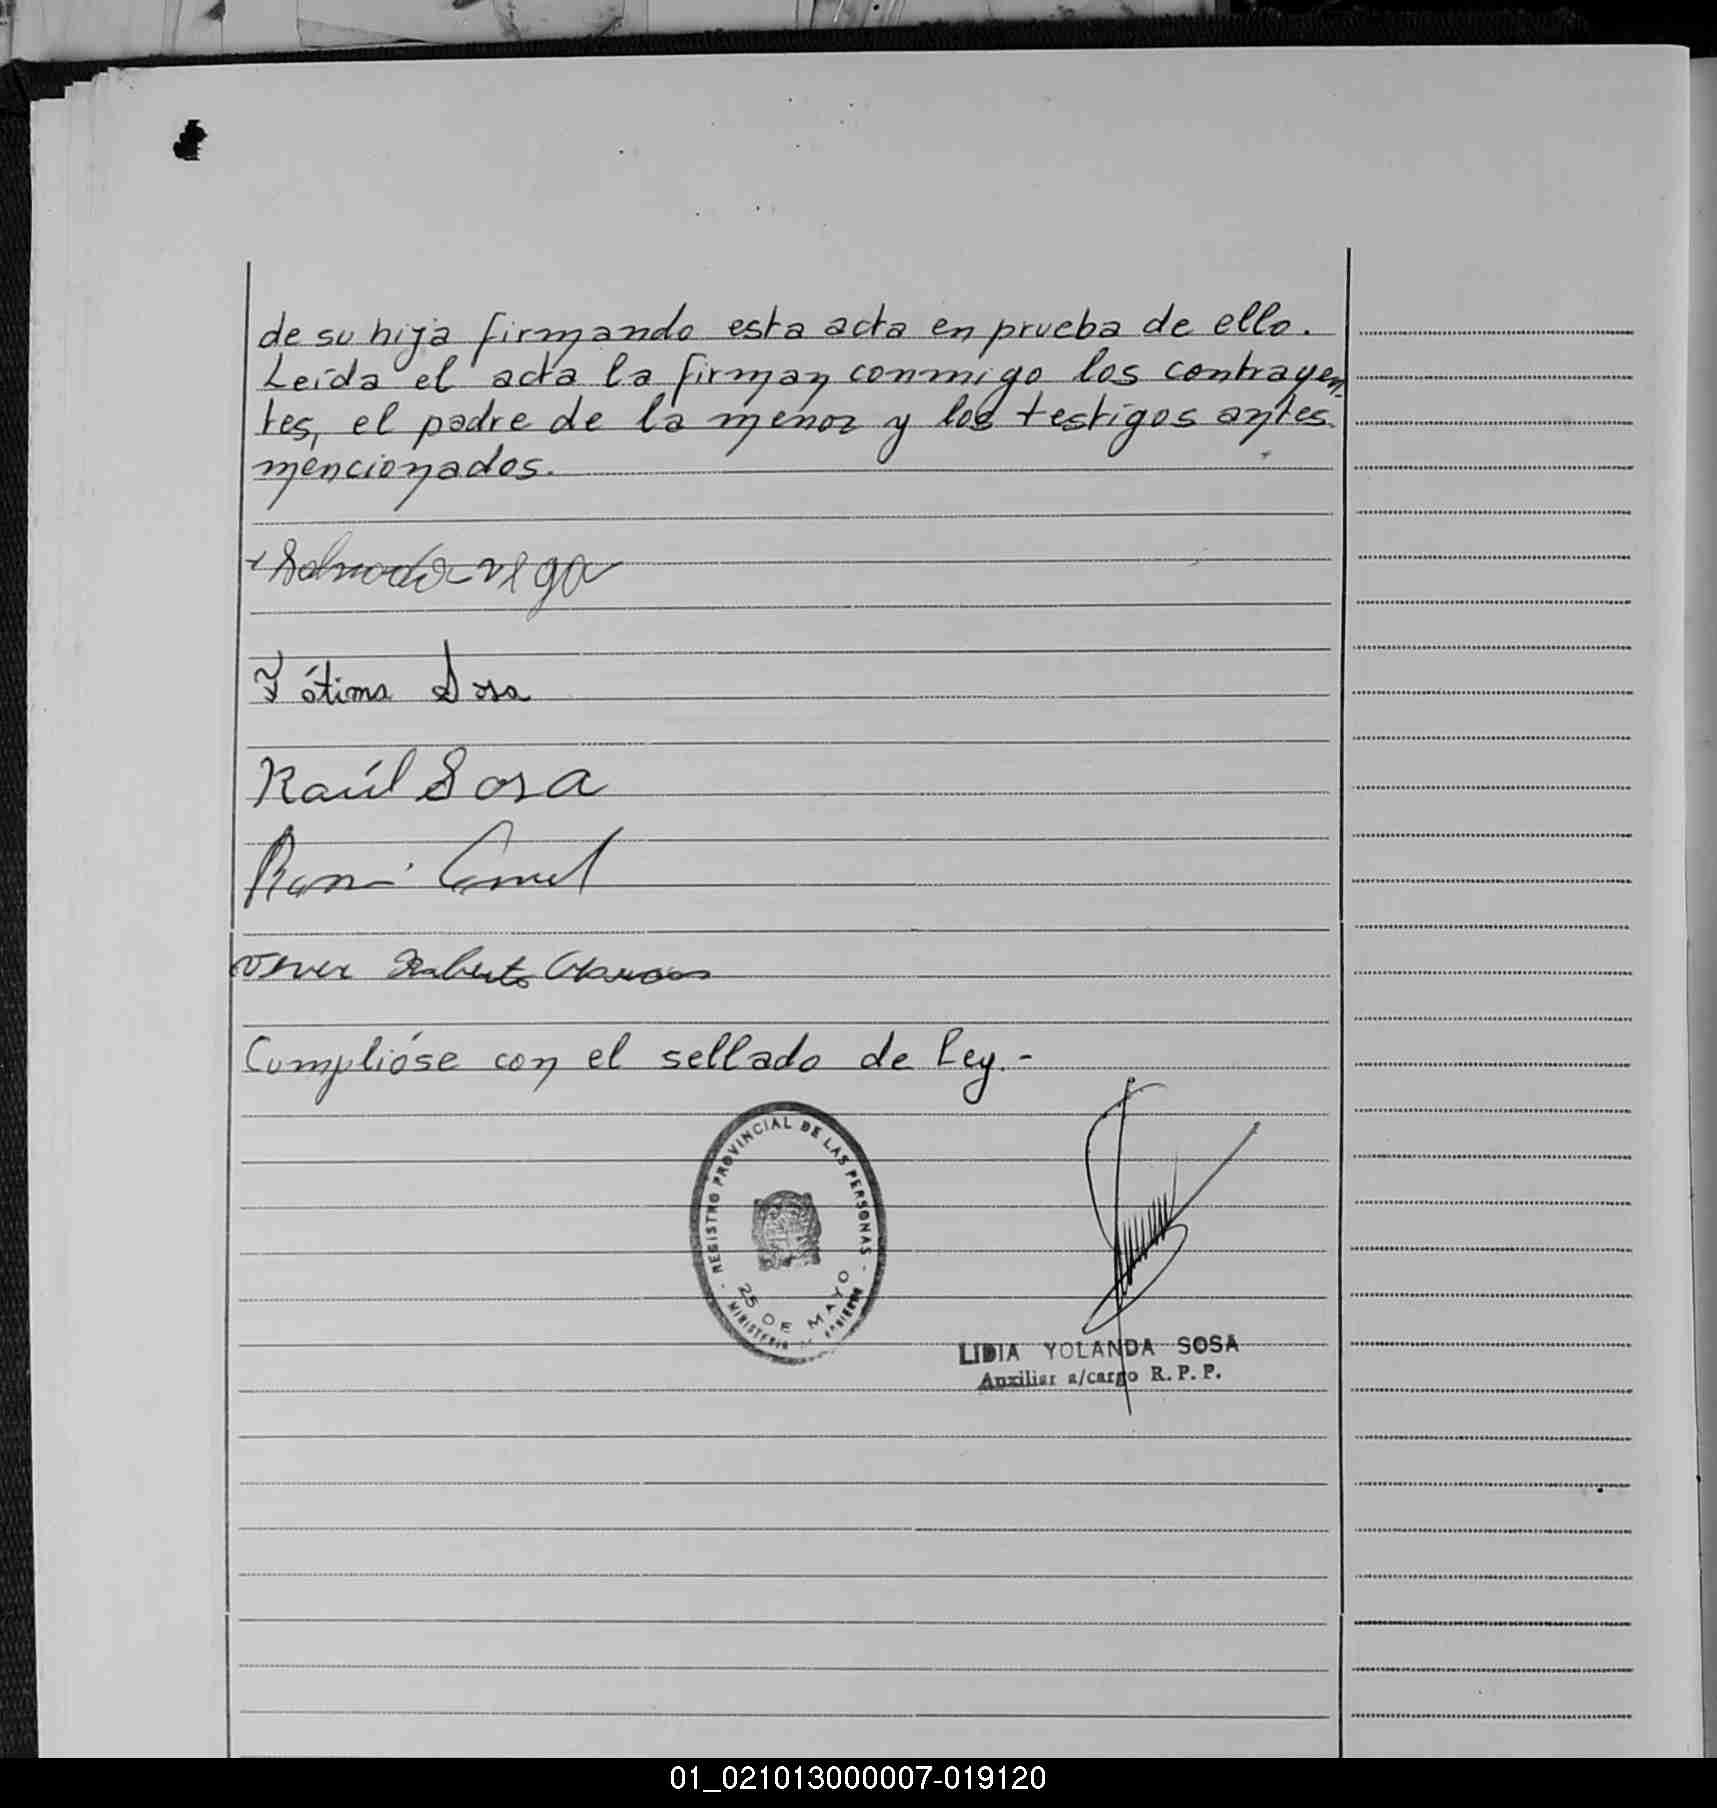 de su hija firmando esta acta en prueba de ello.
Leída el acta la firman conmigo los contrayen-
tes, el padre de la menor y los testigos antes
mencionados.
Salvador Vega
Fátima Sosa
Raúl Sosa
Roberto
Cumplióse con el sellado de Ley.-
- REGISTRO PROVINCIAL DE LAS PERSONAS -
25 DE MAYO
MINISTERIO DE GOBIERNO
LIDIA YOLANDA SOSA
Auxiliar a/cargo R. P. P.
01_021013000007-019120